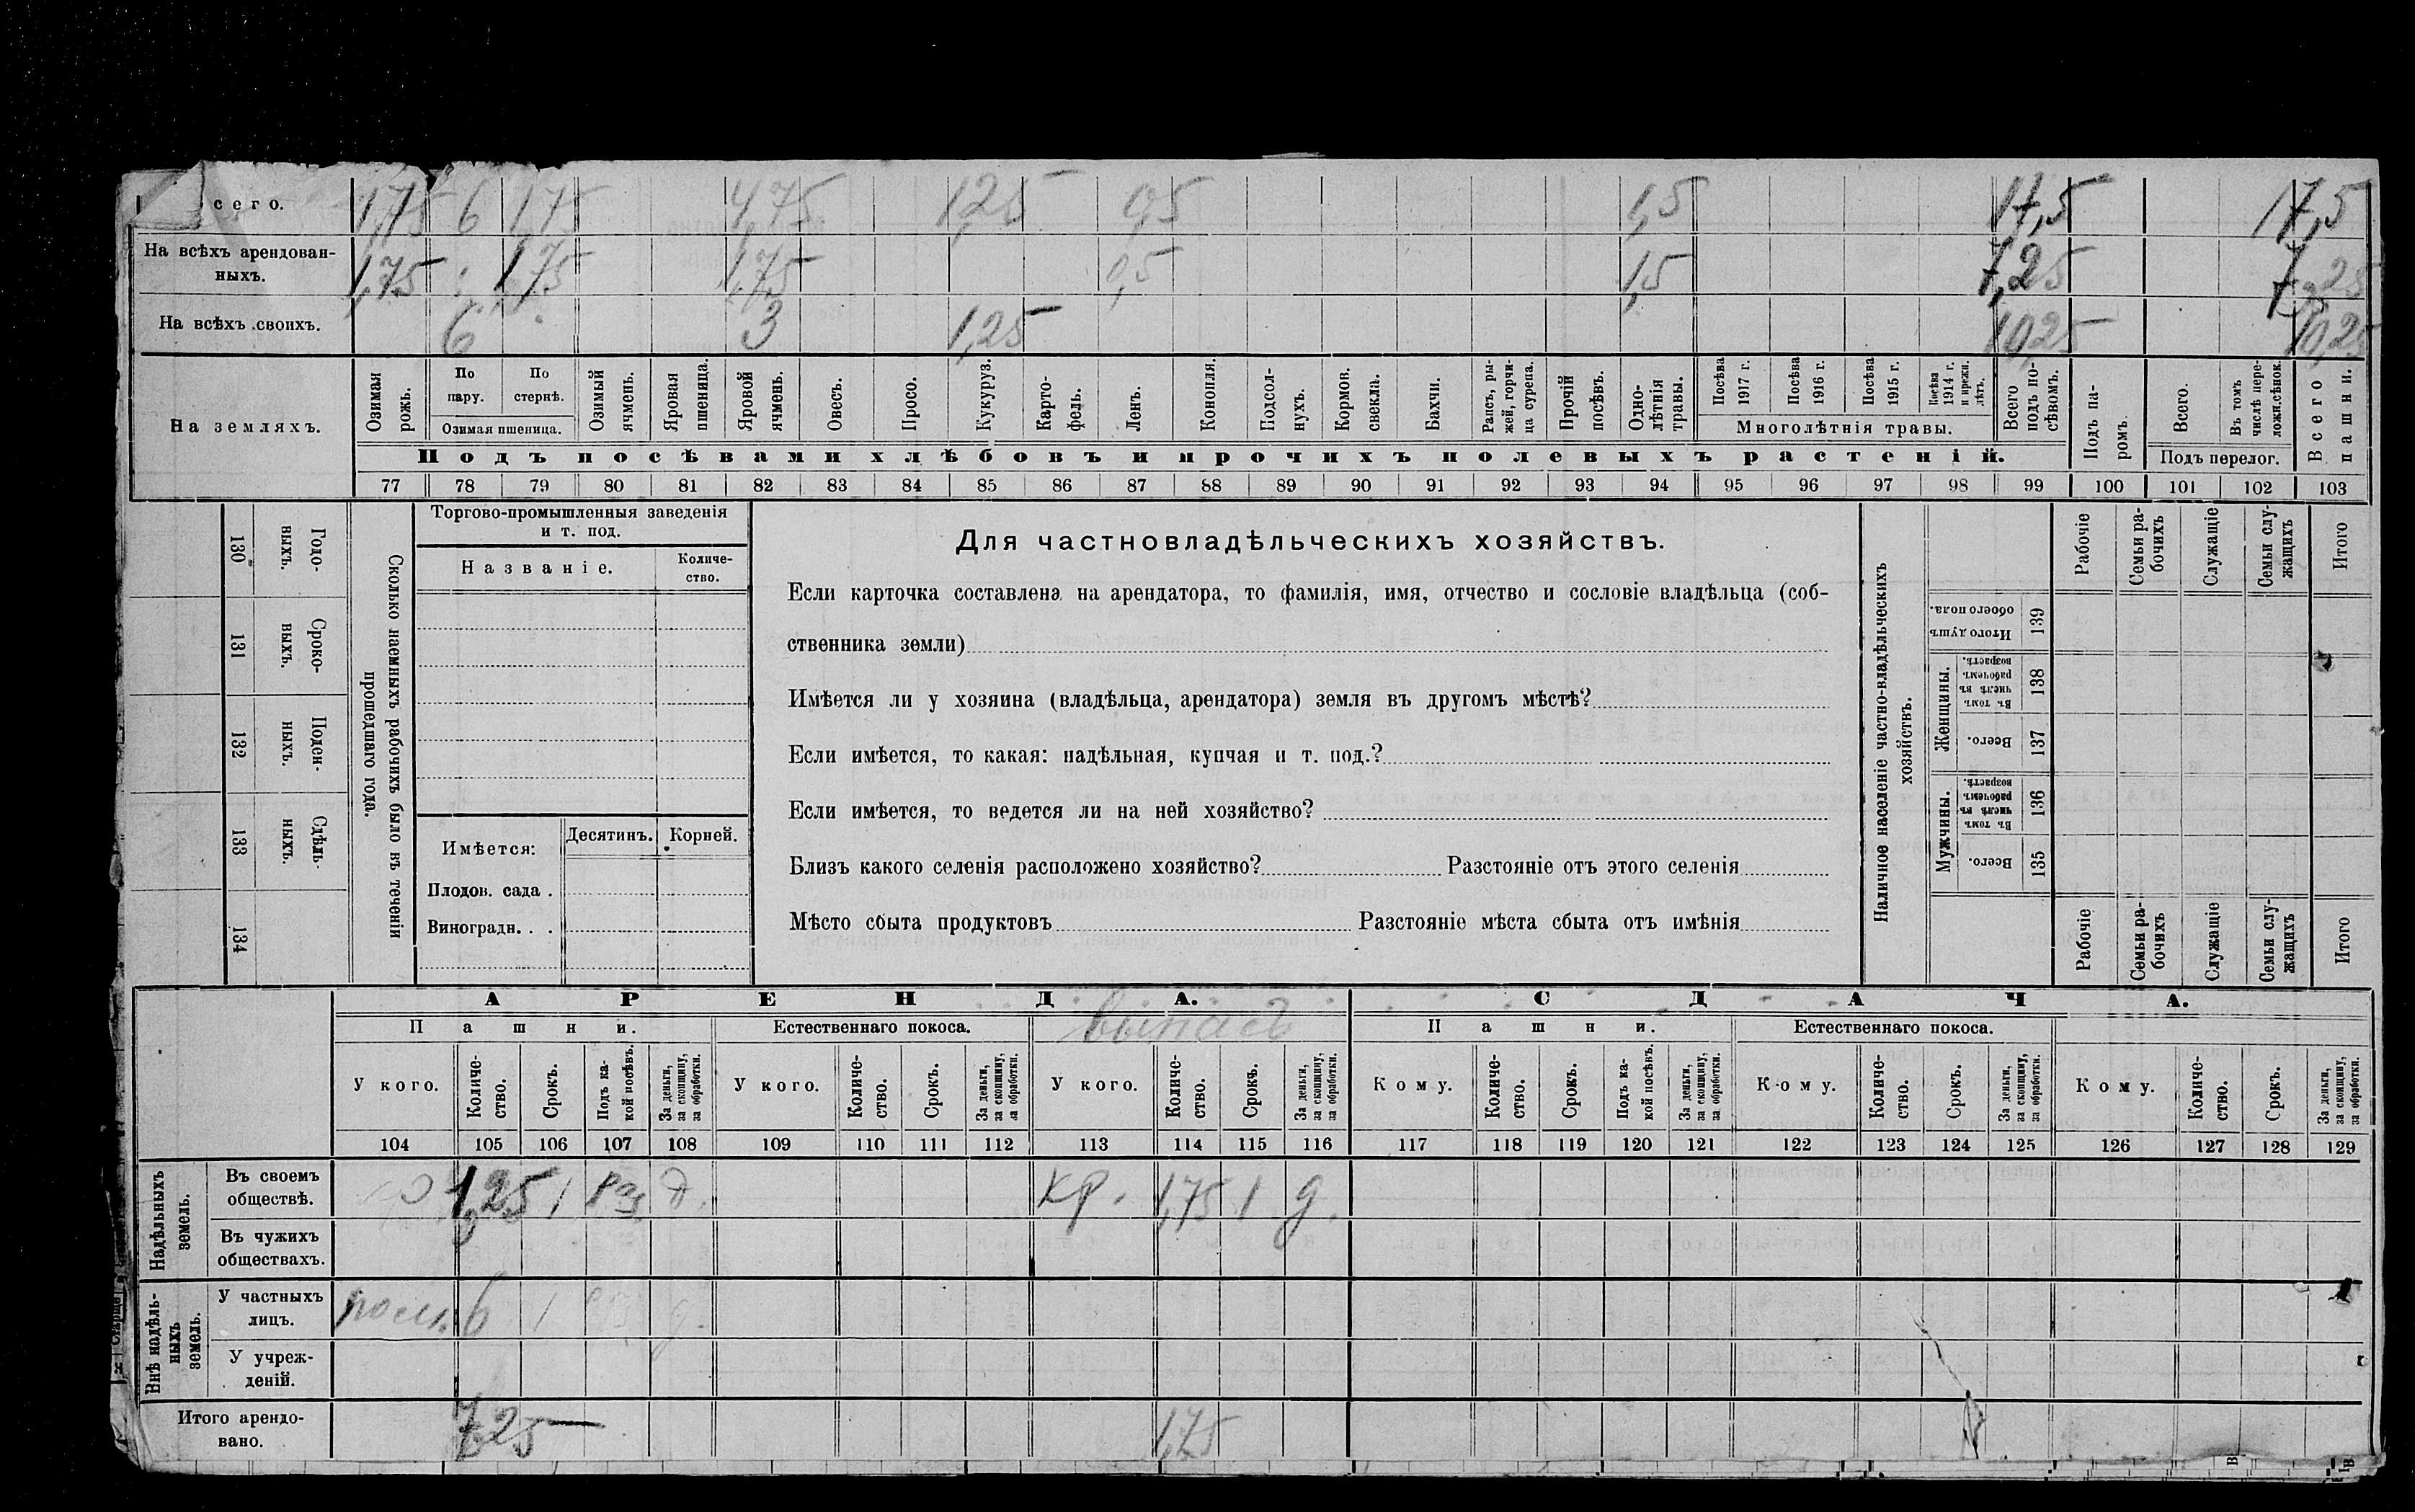 сего. 1,75 6 1,75 4,75 1,25 0,5 1,5 17,5 17,5
На всѣхъ арендован-
ныхъ. 1,75 1,75 1,75 0,5 1,5 7,25 7,25
На всѣхъ своихъ. 6 3 1,25 10,25 10,25
На земляхъ.
Озимая рожь.
По пару.
По стернѣ.
Озимая пшеница.
Озимый ячмень.
Яровая пшеница.
Яровой ячмень.
Овесъ.
Просо.
Кукуруз.
Карто-
фель.
Ленъ.
Конопля.
Подсол-
нухъ.
Кормов. свекла.
Бахчи.
Рапсъ, ры-
жей, горчи-
ца сурепа.
Прочій посѣвъ.
Одно-
лѣтнія травы.
Посѣва 1917 г.
Посѣва 1916 г.
Посѣва 1915 г.
Посѣва 1914 г. и прежн. лѣтъ.
Многолѣтнія травы.
Всего подъ по-
сѣвомъ.
Подъ па-
ромъ.
Всего.
Въ томъ числѣ пере-
ложн. сѣнок.
Подъ перелог.
Всего пашни.
Подъ посѣвами хлѣбовъ и прочихъ полевыхъ растеній.
77 78 79 80 81 82 83 84 85 86 87 88 89 90 91 92 93 94 95 96 97 98 99 100 101 102 103
130 Годо-
ныхъ.
131 Сроко-
выхъ.
132 Поден-
ныхъ.
133 Сдѣль-
ныхъ.
134
Сколько наемныхъ рабочихъ было въ теченіи
прошедшаго года.
Торгово-промышленныя заведенія
и т. под.
Названіе.
Количе-
ство.
Имѣется:
Десятинъ.
Корней.
Плодов. сада .
Виноградн. . .
Для частновладѣльческихъ хозяйствъ.
Если карточка составлена на арендатора, то фамилія, имя, отчество и сословіе владѣльца (соб-
ственника земли)
Имѣется ли у хозяина (владѣльца, арендатора) земля въ другомъ мѣстѣ?
Если имѣется, то какая: надѣльная, купчая и т. под.?
Если имѣется, то ведется ли на ней хозяйство?
Близъ какого селенія расположено хозяйство? Разстояніе отъ этого селенія
Мѣсто сбыта продуктовъ Разстояніе мѣста сбыта отъ имѣнія
Наличное населеніе частно-владѣльческихъ
хозяйствъ.
Рабочіе
Семьи ра-
бочихъ
Служащіе
Семьи слу-
жащихъ
Итого
Итого душ обоего пола. 139
Женщины.
Въ томъ числѣ въ рабочемъ возрастѣ. 138
Всего. 137
Мужчины.
Въ томъ числѣ въ рабочемъ возрастѣ. 136
Всего. 135
Рабочіе
Семьи ра-
бочихъ
Служащіе
Семьи слу-
жащихъ
Итого
АРЕНДА. СДАЧА.
Пашни. Естественнаго покоса. выпасъ Пашни. Естественнаго покоса.
У кого. Количе-
ство. Срокъ. Подъ ка-
кой посѣвъ. За деньги, за скопщину, за обработки.
У кого. Количе-
ство. Срокъ. За деньги, за скопщину, за обработки.
У кого. Количе-
ство. Срокъ. За деньги, за скопщину, за обработки.
Кому. Количе-
ство. Срокъ. Подъ ка-
кой посѣвъ. За деньги, за скопщину, за обработки.
Кому. Количе-
ство. Срокъ. За деньги, за скопщину, за обработки.
Кому. Количе-
ство. Срокъ. За деньги, за скопщину, за обработки.
104 105 106 107 108 109 110 111 112 113 114 115 116 117 118 119 120 121 122 123 124 125 126 127 128 129
Надѣльныхъ земель.
Въ своемъ
обществѣ. 1,25 1 д. кр. 1,75 1 д.
Въ чужихъ
обществахъ.
Внѣ надѣль-
ныхъ земель.
У частныхъ
лицъ. пом. 6 1 д.
У учреж-
деній.
Итого арендо-
вано. 7,25 1,75